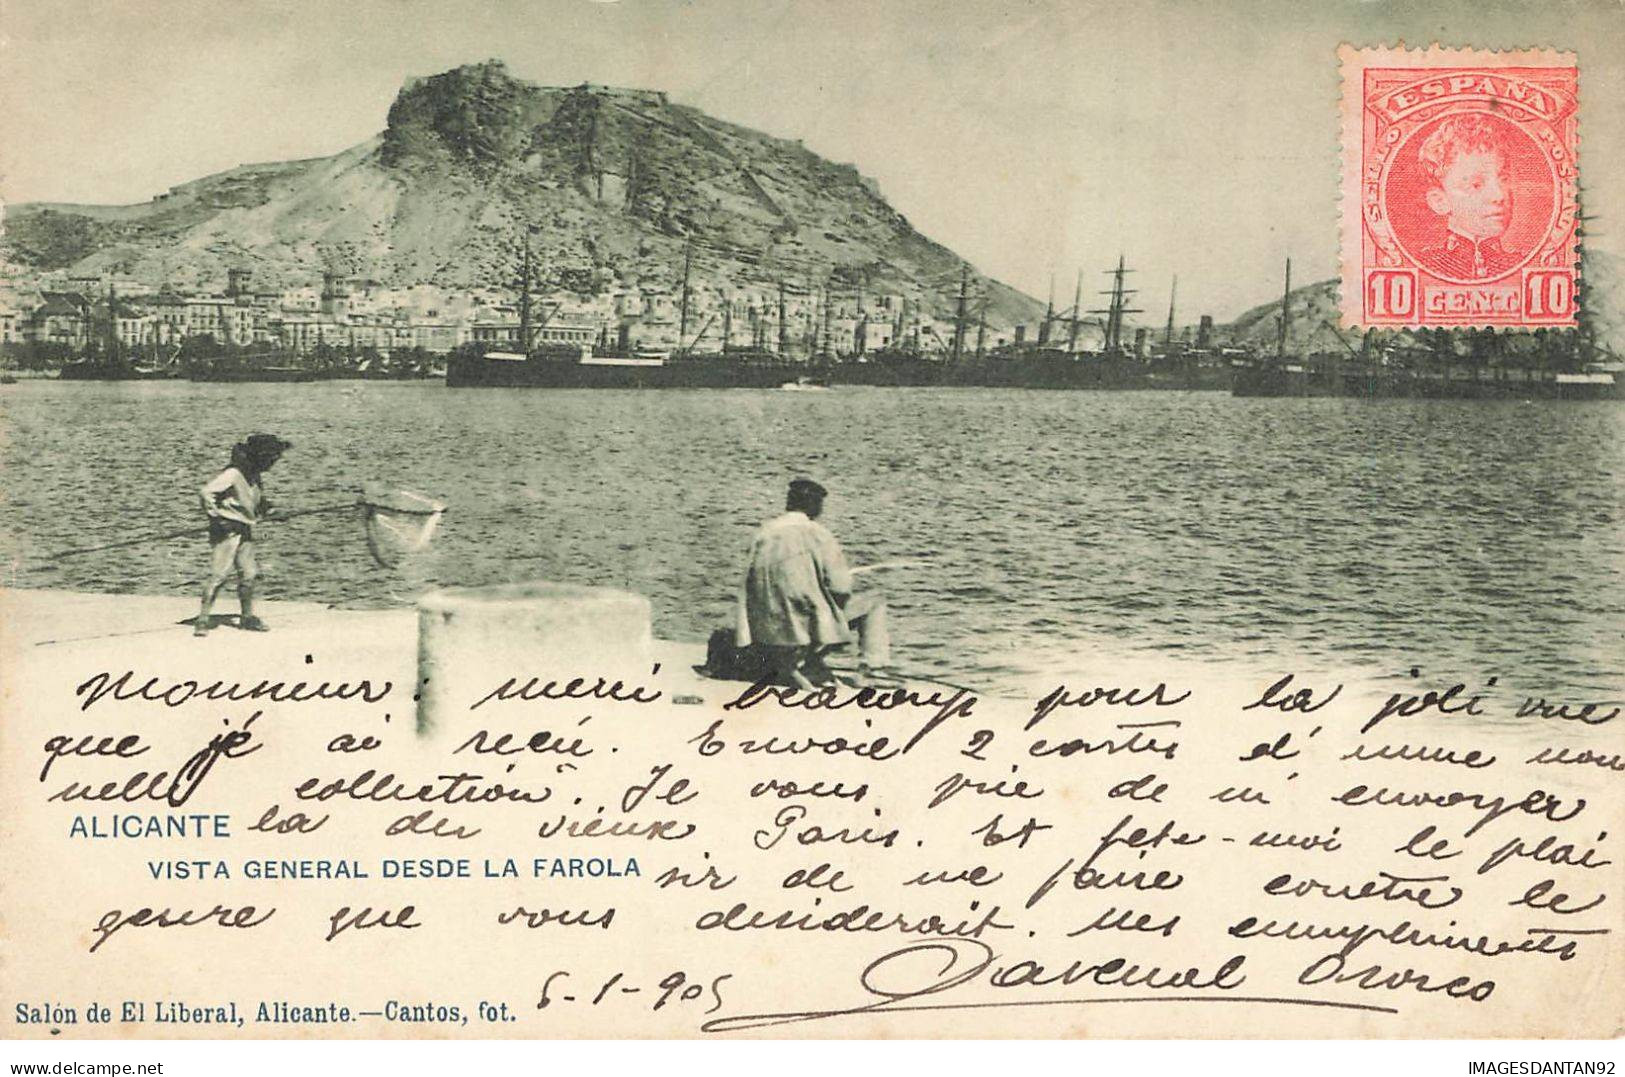 ESPAÑA
SELLO POSTAL
10 CENT. 10
Monsieur: merci beacoup pour la joli vue
que jé ai reçu. Envoie 2 cartes d' unne nou
nelle collection. Je vous prie de m' envoyer
ALICANTE la du vieux Paris. Et fete-moi le plai
VISTA GENERAL DESDE LA FAROLA sir de me faire le
genre que vous desiderait. Mes cumpliments
6-1-905 Orozco
Salón de El Liberal, Alicante.—Cantos, fot.
delcampe.net
IMAGESDANTAN92